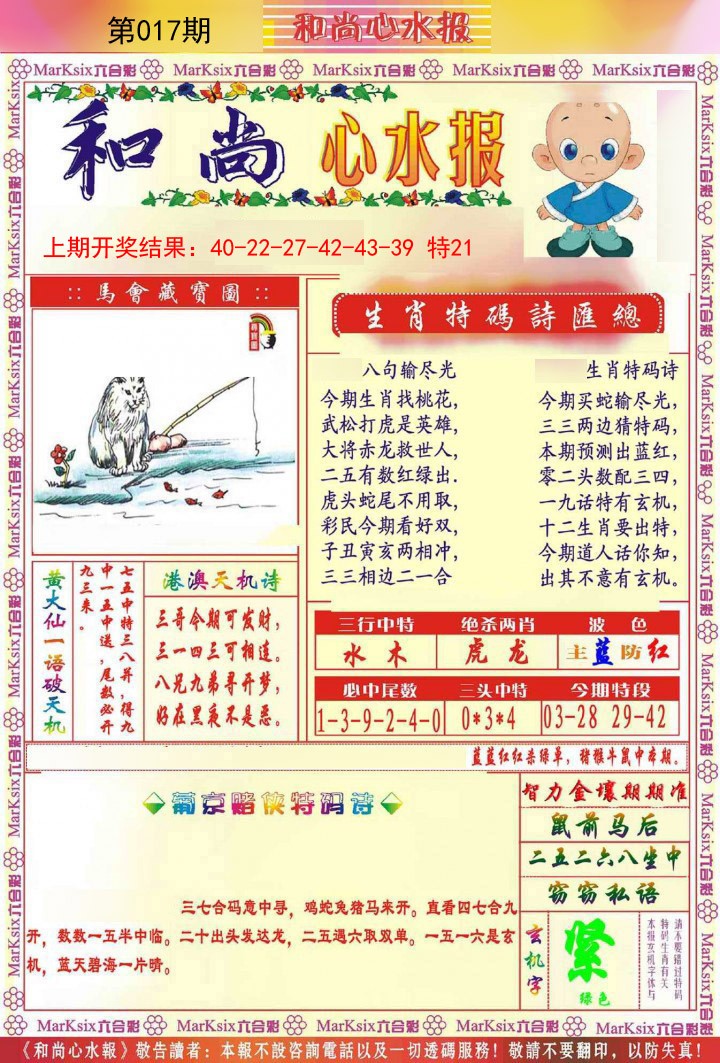 第017期
和尚心水报
MarKsix六合彩 MarKsix六合彩 MarKsix六合彩 MarKsix六合彩 MarKsix六合彩
和尚 心水报
上期开奖结果：40-22-27-42-43-39 特21
::馬會藏寶圖::
尋寶圖
生肖特碼詩匯總
八句输尽光
今期生肖找桃花，
武松打虎是英雄，
大将赤龙救世人，
二五有数红绿出．
虎头蛇尾不用取，
彩民今期看好双，
子丑寅亥两相冲，
三三相边二一合
生肖特码诗
今期买蛇输尽光，
三三两边猜特码，
本期预测出蓝红，
零二头数配三四，
一九话特有玄机，
十二生肖要出特，
今期道人话你知，
出其不意有玄机。
黄大仙一语破天机
七五中特三八并，得九
中一五中送，尾数必开
九三来。
港澳天机诗
三哥今期可发财，
三一四三可相连。
八兄九弟寻开梦，
好在黑夜不是恶。
三行中特 绝杀两肖 波色
水木 虎龙 主蓝防红
必中尾数 三头中特 今期特段
1-3-9-2-4-0 0*3*4 03-28 29-42
蓝蓝红红杀绿单，猪猴牛鼠中本期。
葡京赌侠特码诗
三七合码意中寻，鸡蛇兔猪马来开。直看四七合九
开，数数一五半中临。二十出头发达龙，二五遇六取双单。一五一六是玄
机，蓝天碧海一片晴。
智力金壤期期准
鼠前马后
二五二六八坐中
窃窃私语
玄机字
紧
绿色
请不要错过特码
特码生肖有关
本报玄机字体与
MarKsix六合彩 MarKsix六合彩 MarKsix六合彩 MarKsix六合彩 MarKsix六合彩
《和尚心水報》敬告讀者：本報不設咨詢電話以及一切透碼服務！敬請不要翻印，以防失真！